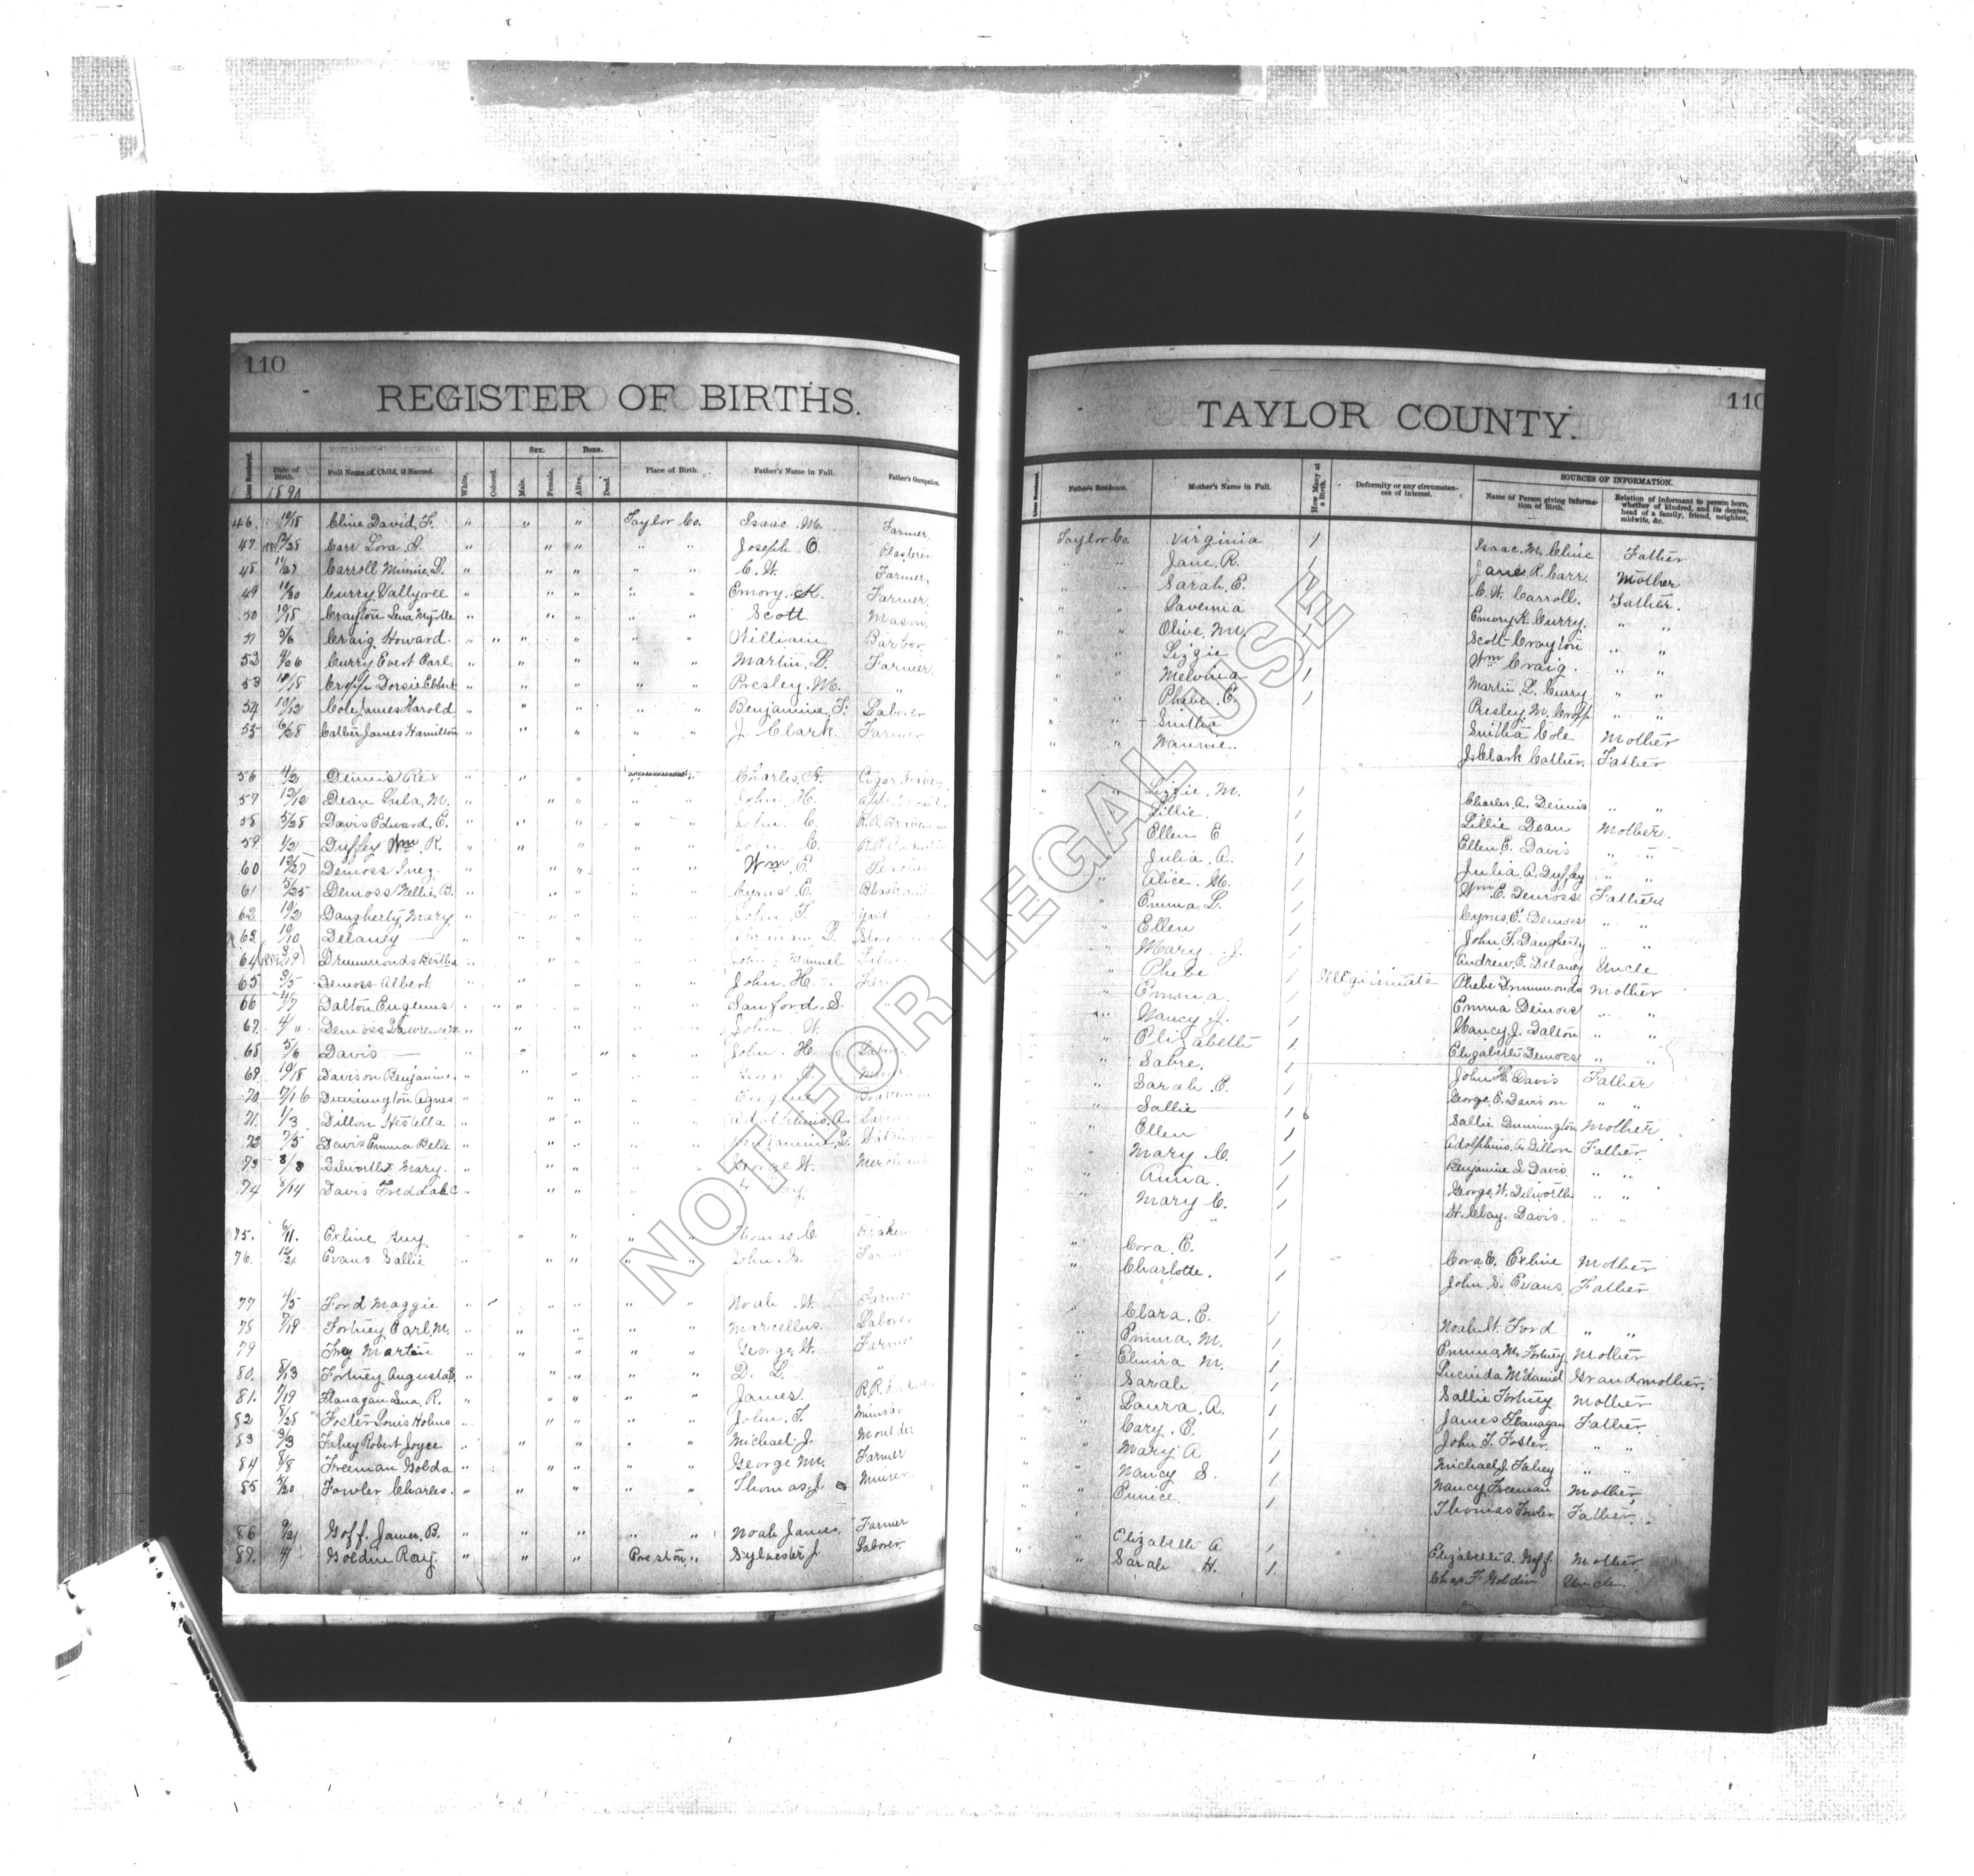 110
REGISTER OF BIRTHS.
Line Numbered. Date of Birth. Full Name of Child, if Named. White. Colored. Sex. Male. Female. Born. Alive. Dead. Place of Birth. Father's Name in Full. Father's Occupation.
46. 10/18 Cline David, F. " " " Taylor Co. Isaac. M. Farmer
47. Carr Lora. L. " " " " " Joseph. O.
48 11/27 Carroll Minnie, L. " " " " " C. W. Farmer,
49 11/30 Curry " " " " " Emory. K. Farmer.
50 10/18 Crayton Lena Myrtle " " " " " Scott Mason.
51 5/6 Craig Howard. " " " " " William Barbor
52 4/26 Curry Evert Earl. " " " " " Martin, L. Farmer
53 Cropp Dorsie Ebbert " " " " " Presley. M. "
54 10/12 Cole James Harold " " " " " Benjamine, F. Laborer
55 6/28 Cather James Hamilton " " " " " J. Clark. Farmer
56 4/2 Dennis Rex " " " " Charles, A.
57 12/12 Dean Lula, M. " " " " " John, H.
58 5/28 Davis Edward, E. " " " " " John. C
59 1/2 Duffey Wm. R. " " " " " John C.
60 Demoss Inez. " " " " " Wm. E.
61 5/25 Demoss Nellie, B. " " " " " Cyrus E.
62. 10/2 Daugherty Mary " " " " " John, F.
63. 10/10 Delaney — " " " " "
64 Drummonds Bertha " " " " "
65 3/5 Demoss Albert " " " " " John. H.
66 4/7 Dalton Eugenus " " " " " Sanford. S.
67. Demoss Lawrence, M " " " " " John W.
68 5/6 Davis — " " " " " John. H.
69. 10/18 Davison Benjamine, " " " " " George E.
70. 7/16 Dunnington Agnes " " " " " Eugene
71. 1/3 Dillon Hestella " " " " "
72 7/5 Davis Emma Belle " " " " "
73 8/8 Dilworth Mary. " " " " " George W. Merchant
74 8/14 Davis " " " " "
75. 6/11. Exline Guy " " " " " Thomas. C
76. 12/21 Evans Sallie " " " " " John. S.
77 4/5 Ford Maggie " " " " " Noah. W. Farmer
78 7/19 Fortney Earl, M. " " " " " Marcellus. Laborer
79 Frey Martin " " " " " George, W. Farmer
80. 8/13 Fortney Augusta, E. " " " " " D. L. "
81. 7/19 Flanagan Lena, R. " " " " " James.
82 8/28 Foster Louis Holms " " " " " John. F. Minister
83 3/3 Fahey Robert Joyce " " " " " Michael. J. Moulder
84 8/8 Freeman Golda " " " " " George M. Farmer
85 5/20 Fowler Charles. " " " " " Thomas. J Miner
86 9/21 Goff. James, B. " " " " " Noah James, Farmer
87. Goldin Ray. " " " Preston " Sylvester J. Laborer
110
TAYLOR COUNTY.
Line Numbered. Father's Residence. Mother's Name in Full. How Many at a Birth. Deformity or any circumstances of interest. SOURCES OF INFORMATION. Name of Person giving Information of Birth. Relation of informant to person born, whether of kindred, and its degree, head of a family, friend, neighbor, midwife, &c.
Taylor Co. Virginia 1 Isaac. M. Cline Father
" " Jane. R. 1 Jane R. Carr. Mother
" " Sarah. E. 1 C. W. Carroll. Father.
" " Lavernia 1 Emory K. Curry. " "
" " Olive, M. 1 Scott Crayton " "
" " Lizzie 1 Wm Craig. " "
" " Melvina 1 Martin. L. Curry " "
" " Phebe. E. 1 Presley. M. Cropp " "
" " Smitha Smitha Cole Mother
" " Nannie. J. Clark Cather. Father
" " Lizzie. M. 1 Charles. A. Dennis " "
" Lillie. 1 Lillie Dean Mother.
" Ellen E 1 Ellen E. Davis " "
" Julia. A. 1 Julia, A. Duffey " "
" Alice. M. 1 Wm. E. Demoss. Father
" Emma. L. 1 Cyrus, E. Demoss " "
" Ellen 1 John, F. Daugherty " "
" Mary. J. 1 Andrew. E. Delaney Uncle
" Phebe. 1 Illegitimate Phebe Drummonds Mother
" Emma. 1 Emma Demoss " "
" " Nancy. J. 1 Nancy. J. Dalton " "
" Elizabeth 1. Elizabeth Demoss " "
" Sabre. 1 John H. Davis Father
" Sarah. E. 1 George, E. Davison " "
" Sallie 1 Sallie Dunnington Mother.
" Ellen 1 Adolphino. A. Dillon Father.
" Mary. C. 1 Benjamine L Davis " "
" Anna. 1 George. W. Dilworth " "
" Mary C. 1 H. Clay. Davis. " "
" Cora. E. 1 Cora. E. Exline Mother
" Charlotte. 1 John S. Evans Father
" Clara. E. 1 Noah. W. Ford " "
" Emma. M. 1 Emma, M. Fortney Mother
" Elmira M. 1 Lucinda McDaniel Grandmother.
" Sarah 1 Sallie Fortney Mother
" Laura. A. 1 James Flanagan Father.
" Cary. E. 1 John F. Foster. " "
" Mary A 1 Michael J. Fahey " "
" Nancy S. 1 Nancy Freeman Mother,
" Eunice. 1 Thomas Fowler Father.
" " Elizabeth A 1 Elizabeth A. Goff. Mother
" " Sarah H. 1. Chas. F. Goldin Uncle.
NOT FOR LEGAL USE